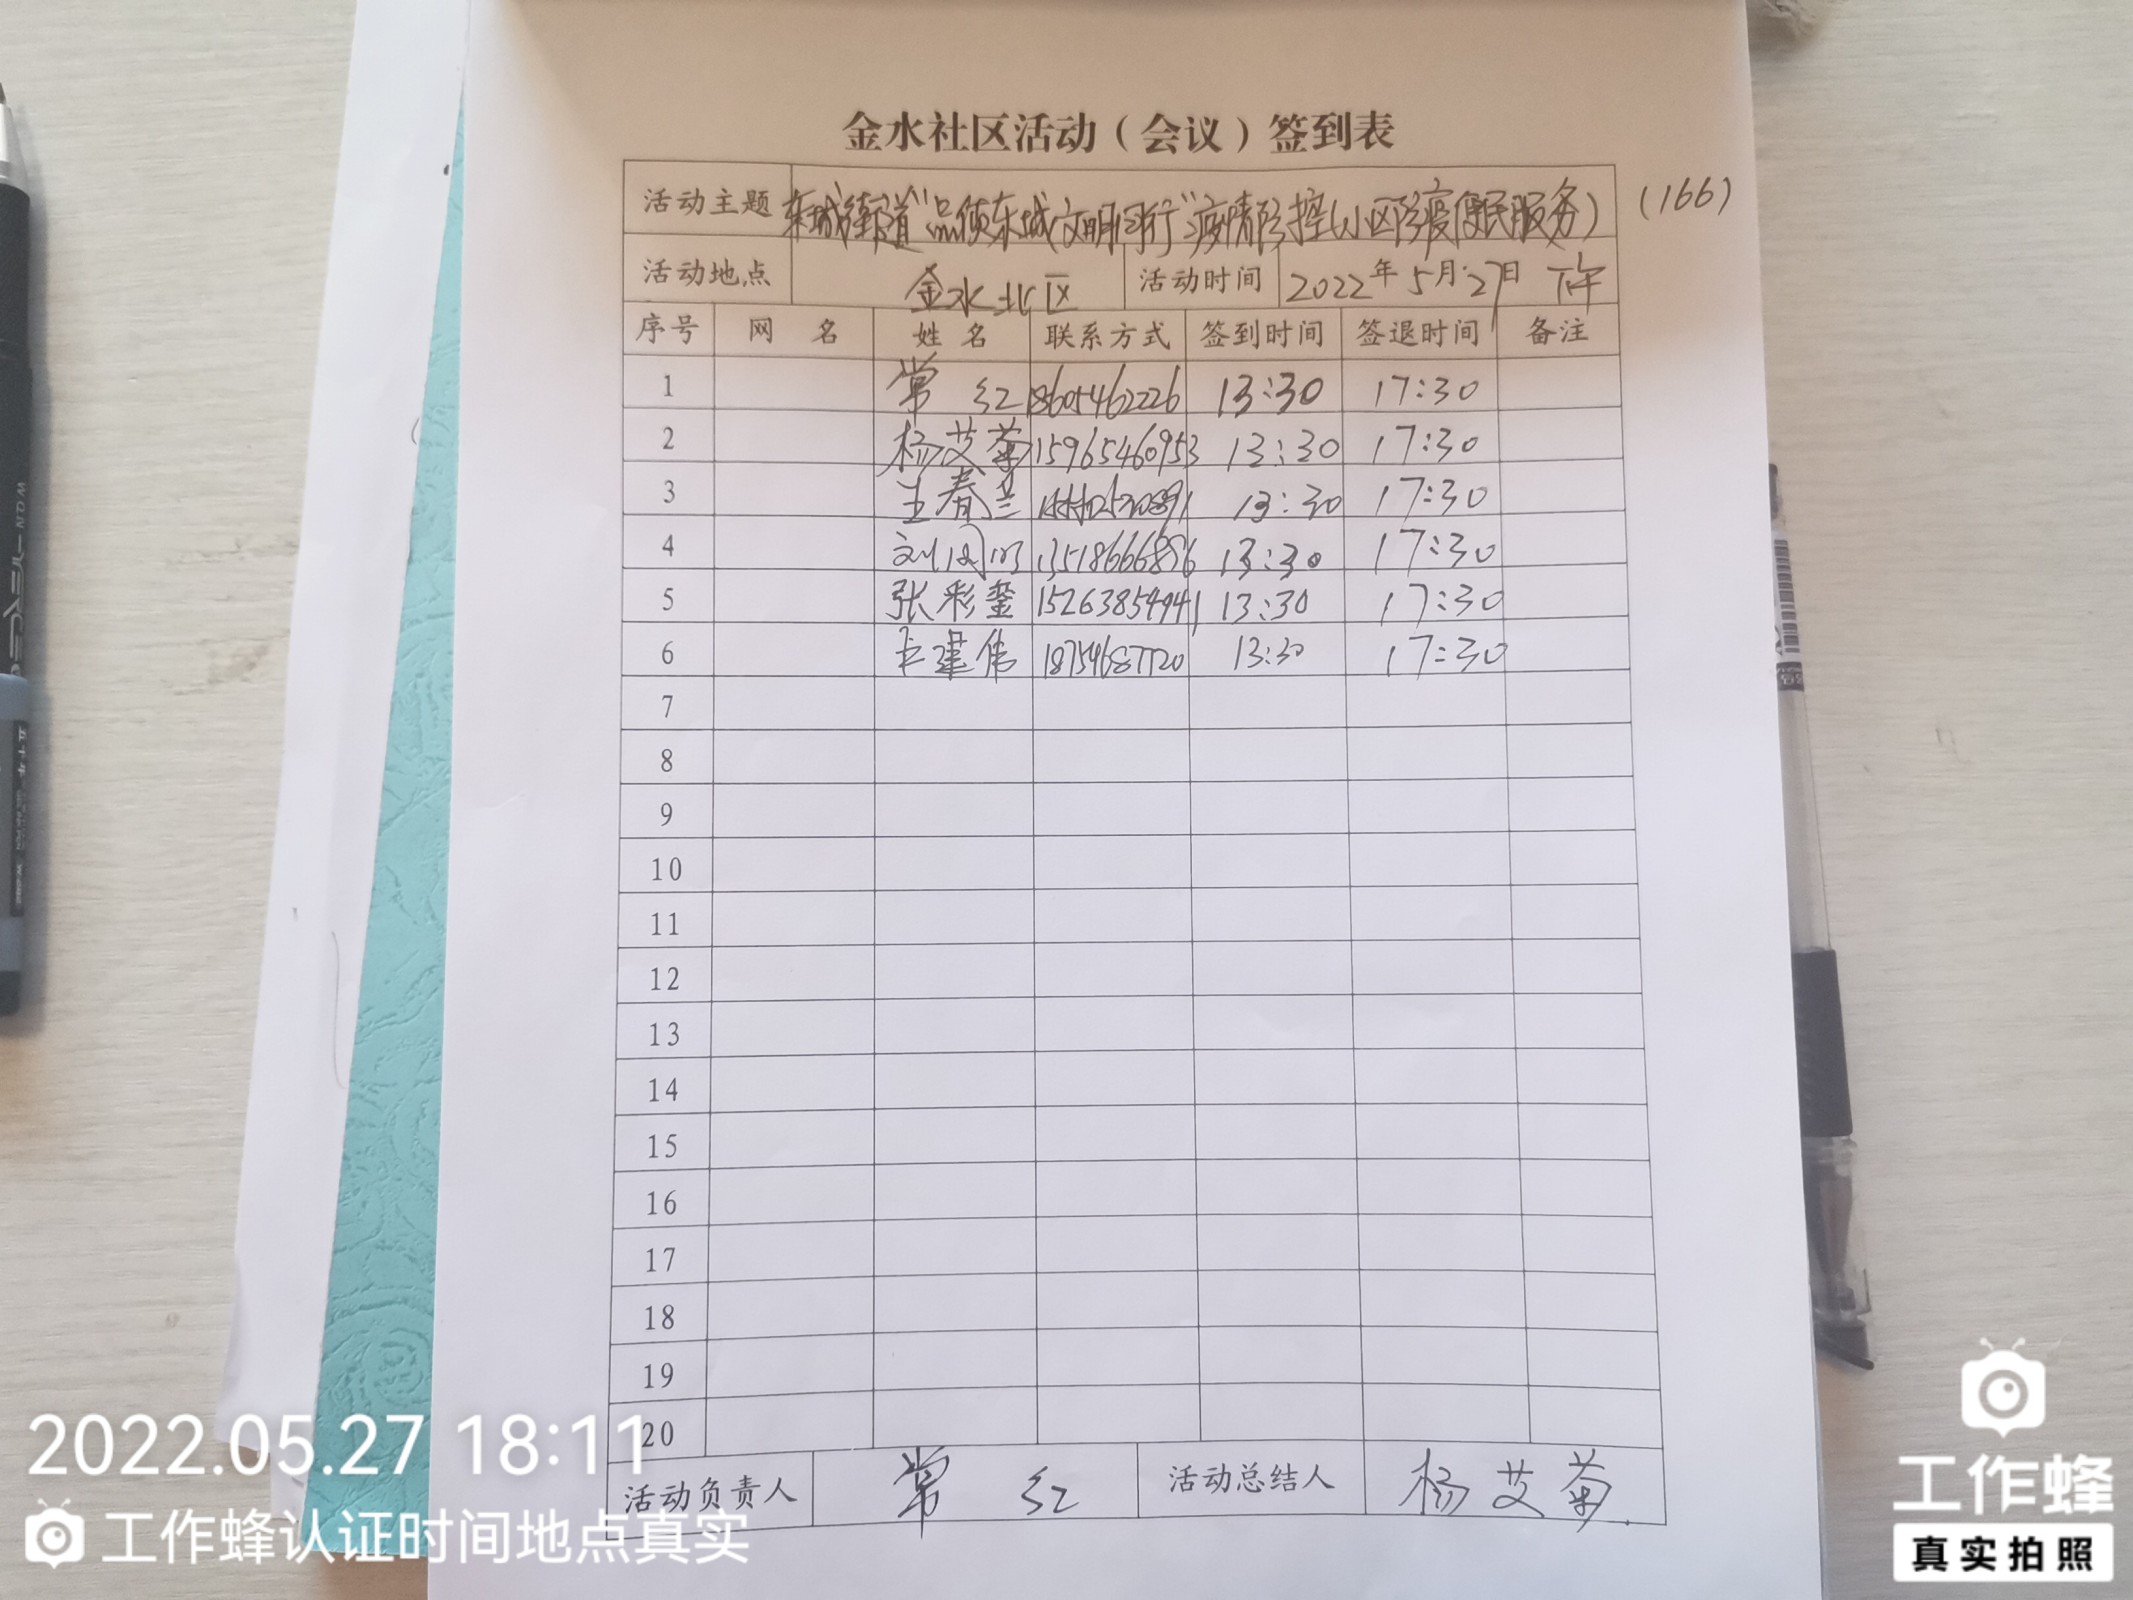 金水社区活动（会议）签到表
活动主题 东城街道“品质东城 文明同行”疫情防控（小区防疫便民服务） (166)
活动地点 金水北区 活动时间 2022年5月27日 下午
序号 网 名 姓 名 联系方式 签到时间 签退时间 备注
1 常 红 18605462226 13:30 17:30
2 杨艾菊 15965460953 13:30 17:30
3 王春兰 13:30 17:30
4 13:30 17:30
5 张彩銮 15263854941 13:30 17:30
6 建伟 18754687720 13:30 17:30
7
8
9
10
11
12
13
14
15
16
17
18
19
20
活动负责人 常 红 活动总结人 杨艾菊
2022.05.27 18:11
工作蜂认证时间地点真实
工作蜂
真实拍照